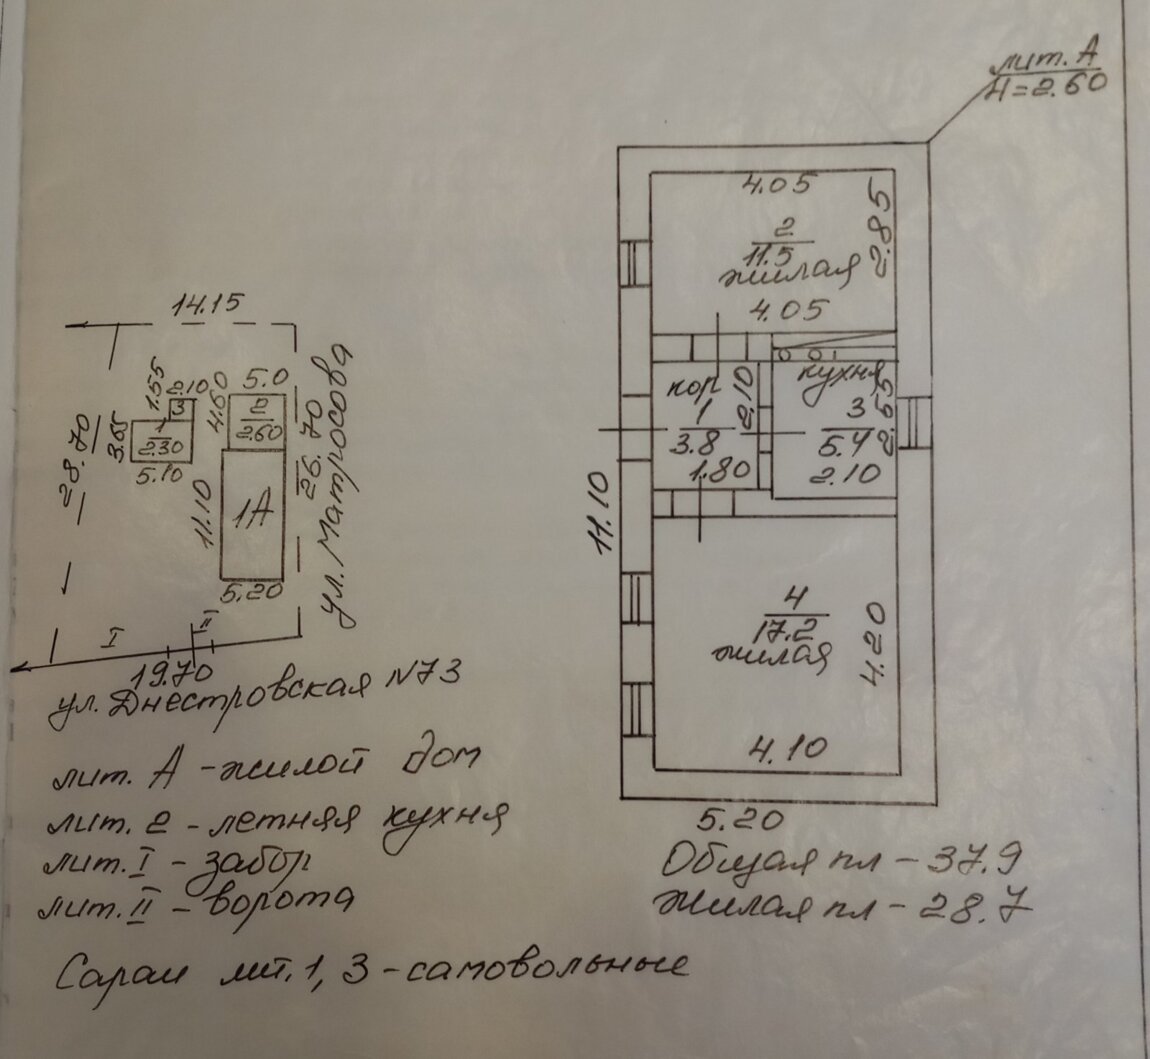 лит. А
H=2.60
4.05
2.85
2
11.5
жилая
4.05
кор
1
3.8
2.10
1.80
кухня
3
5.4
2.65
2.10
11.10
4
17.2
жилая
4.20
4.10
5.20
Общая пл - 37.9
Жилая пл - 28.7
14.15
1.55
2.10
3
4.60
5.0
2
2.60
28.70
3.65
1
2.30
5.10
26.70
ул. Матросова
11.10
1А
5.20
I
II
19.70
ул. Днестровская N73
лит. А - жилой дом
лит. 2 - летняя кухня
лит. I - забор
лит. II - ворота
Сараи лит. 1, 3 - самовольные